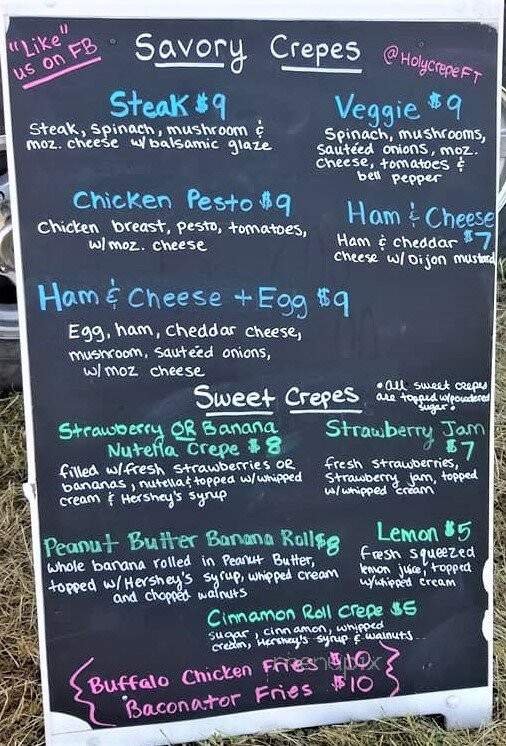 "Like"
us on FB
Savory Crepes
@HolycrepeFT
Steak $9
Steak, spinach, mushroom &
moz. cheese w/balsamic glaze
Veggie $9
Spinach, mushrooms,
sautéed onions, moz.
cheese, tomatoes &
bell pepper
Chicken Pesto $9
Chicken breast, pesto, tomatoes,
w/moz. cheese
Ham & Cheese
$7
Ham & cheddar
cheese w/Dijon mustard
Ham & Cheese + Egg $9
Egg, ham, cheddar cheese,
mushroom, sautéed onions,
w/moz cheese
Sweet Crepes
• all sweet crepes
are topped w/powdered
sugar •
Strawberry OR Banana
Nutella Crepe $8
filled w/fresh strawberries OR
bananas, nutella & topped w/whipped
cream & Hershey's syrup
Strawberry Jam
$7
fresh strawberries,
strawberry jam, topped
w/whipped cream
Peanut Butter Banana Roll $8
whole banana rolled in Peanut Butter,
topped w/Hershey's syrup, whipped cream
and chopped walnuts
Lemon $5
fresh squeezed
lemon juice, topped
w/whipped cream
Cinnamon Roll Crepe $5
sugar, cinnamon, whipped
cream, Hershey's syrup & walnuts
Buffalo Chicken Fries $10
Baconator Fries $10